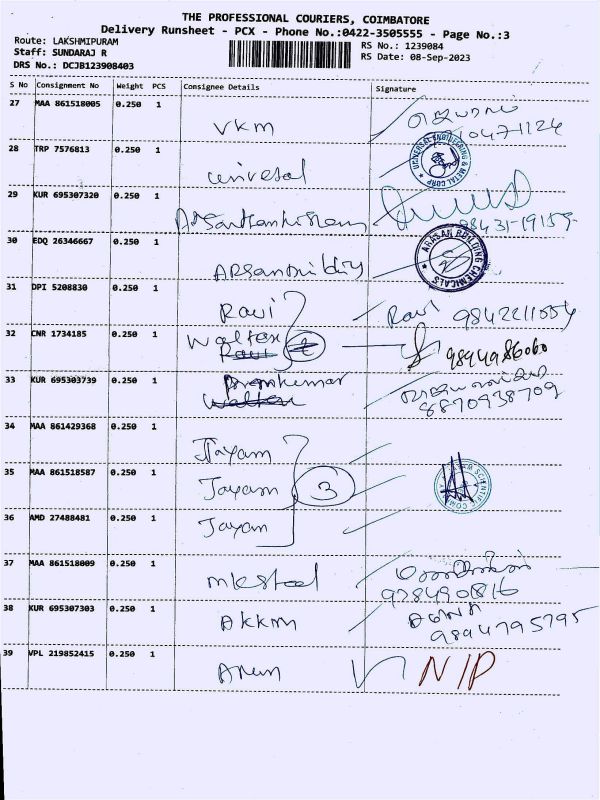 THE PROFESSIONAL COURIERS, COIMBATORE
Delivery Runsheet - PCX - Phone No.:0422-3505555 - Page No.:3
Route: LAKSHMIPURAM
RS No.: 1239084
Staff: SUNDARAJ R
RS Date: 08-Sep-2023
DRS No.: DCJB123908403
S No Consignment No Weight PCS Consignee Details Signature
27 MAA 861518005 0.250 1 VKM
28 TRP 7576813 0.250 1 universal
UNIVERSAL ENGINEERING & METAL CORP
29 KUR 695307320 0.250 1
30 EDQ 26346667 0.250 1
ARASAN BUILDING CHEMICALS
31 DPI 5208830 0.250 1 Ravi Ravi
32 CNR 1734185 0.250 1 Walter 2 9894986060
Ravi
33 KUR 695303739 0.250 1 Premkumar
Walter 8870938709
34 MAA 861429368 0.250 1 Jayam
35 MAA 861518587 0.250 1 Jayam 3
36 AMD 27488481 0.250 1 Jayam
37 MAA 861518009 0.250 1 mksteel
38 KUR 695307303 0.250 1 AKKM
9894795795
39 VPL 219852415 0.250 1 Arun N/P